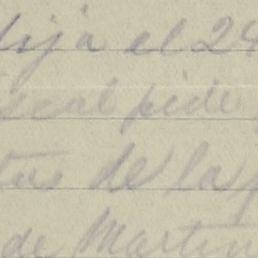 dija el 24
iscal pide
tas de la p
de Martin